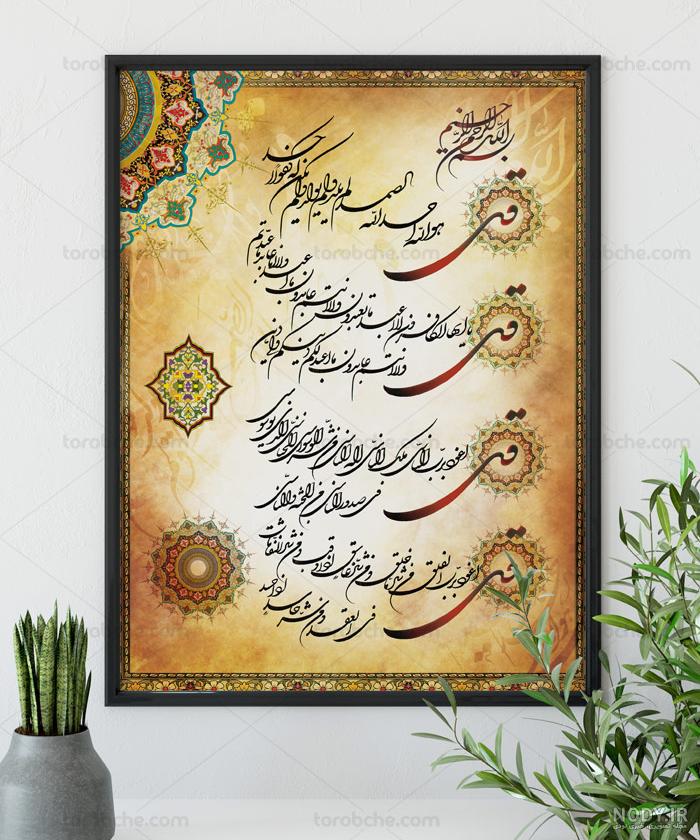 بسم الله الرحمن الرحیم
قل هو الله احد الله الصمد لم یلد و لم یولد و لم یکن له کفوا احد
قل یا ایها الکافرون لا اعبد ما تعبدون و لا انتم عابدون ما اعبد و لا انا عابد ما عبدتم
و لا انتم عابدون ما اعبد لکم دینکم و لی دین
قل اعوذ برب الناس ملک الناس اله الناس من شر الوسواس الخناس الذی یوسوس
فی صدور الناس من الجنة و الناس
قل اعوذ برب الفلق من شر ما خلق و من شر غاسق اذا وقب و من شر النفاثات
فی العقد و من شر حاسد اذا حسد
torobche.com
NODY.IR